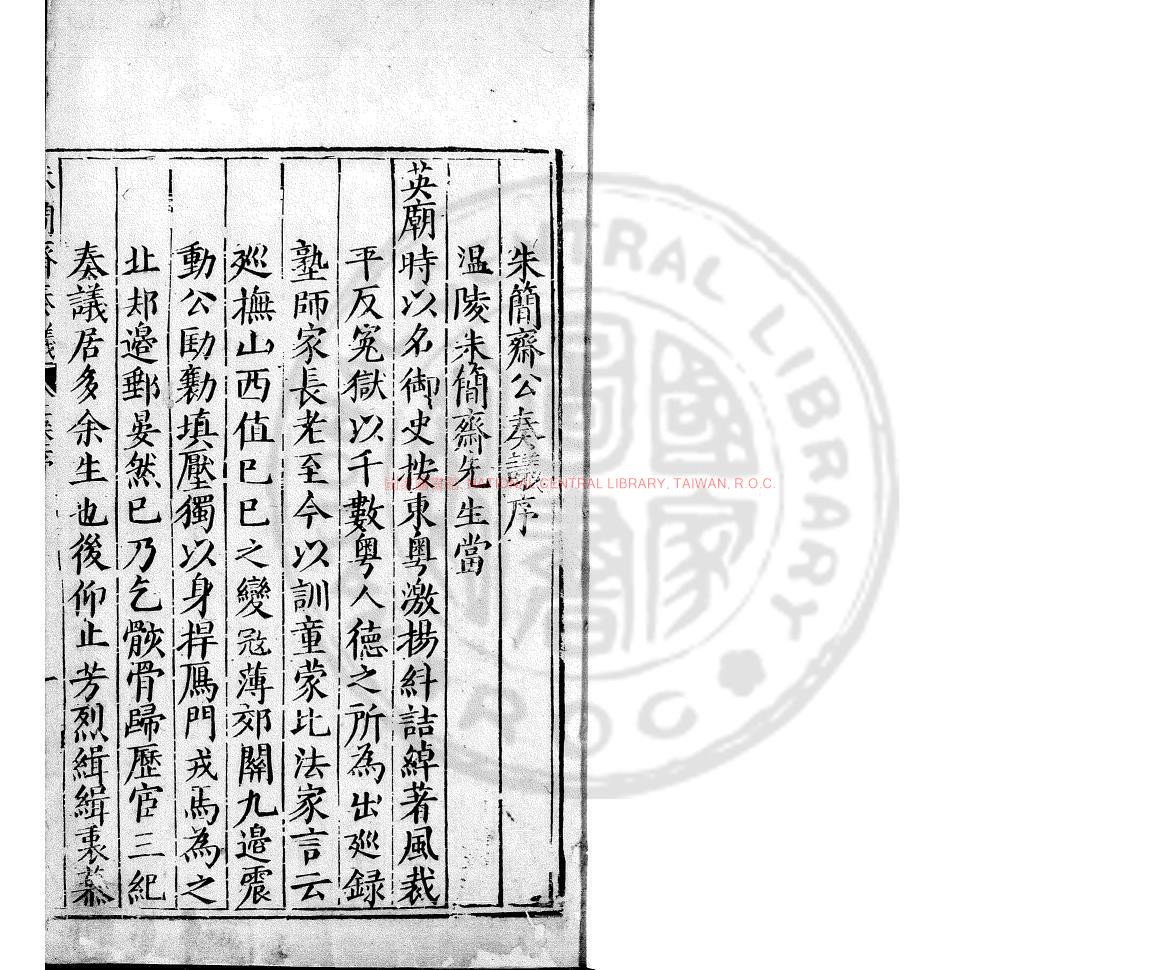 朱簡齋公奏議序
温陵朱簡齋先生當
英廟時以名御史按東粤激揚糾詰綽著風裁
平反冤獄以千數粤人德之所為出廵録
塾師家長老至今以訓童蒙比法家言云
廵撫山西值巳巳之變冦薄郊關九邉震
動公劻勷填壓獨以身捍鴈門戎馬為之
北却邉郵晏然已乃乞骸骨歸歷宦三紀
奏議居多余生也後仰止芳烈緝緝裒纂
NATIONAL CENTRAL LIBRARY, TAIWAN, R.O.C.
CENTRAL LIBRARY
R O C